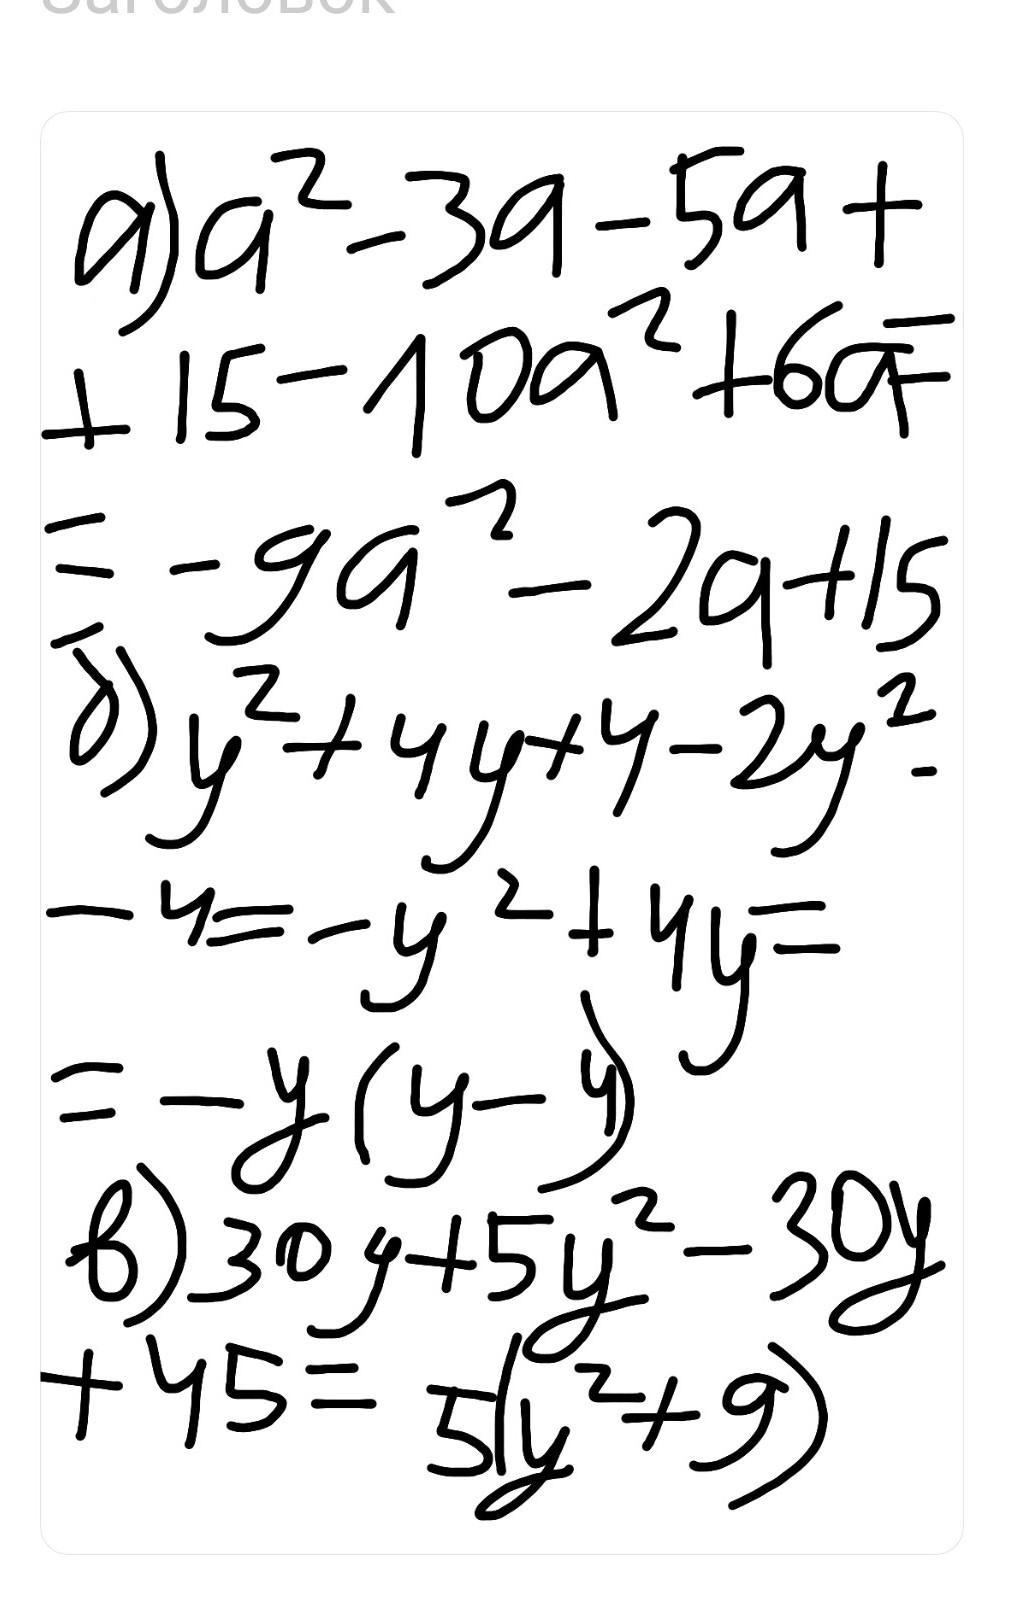 Заголовок
а) a² - 3a - 5a +
+ 15 - 10a² + 6a =
= - 9a² - 2a + 15
б) y² + 4y + 4 - 2y² -
- 4 = - y² + 4y =
= - y (y - 4)
в) 30y + 5y² - 30y
+ 45 = 5(y² + 9)